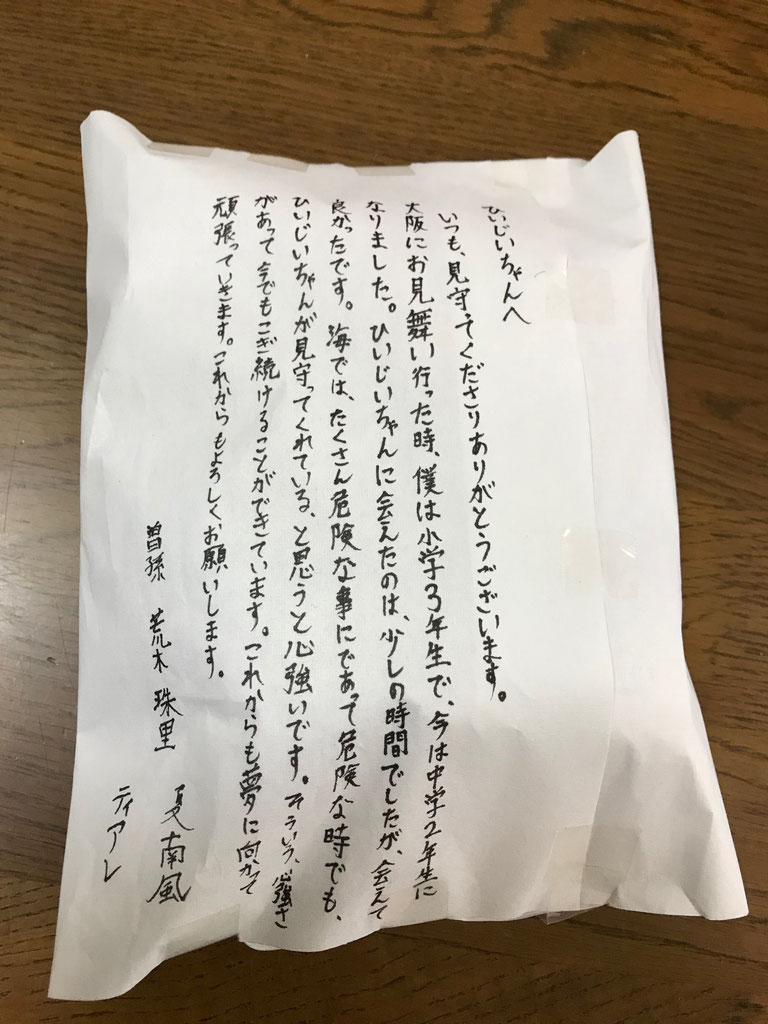 ひいじいちゃんへ
いつも、見守ってくださりありがとうございます。
大阪にお見舞い行った時、僕は小学3年生で、今は中学2年生に
なりました。ひいじいちゃんに会えたのは、少しの時間でしたが、会えて
良かったです。海では、たくさん危険な事にであって危険な時でも、
ひいじいちゃんが見守ってくれている、と思うと心強いです。そういう、心強さ
があって今でもこぎ続けることができています。これからも夢に向かって
頑張っていきます。これからもよろしくお願いします。
曽孫 荒木 珠里 夏南風
ティアレ